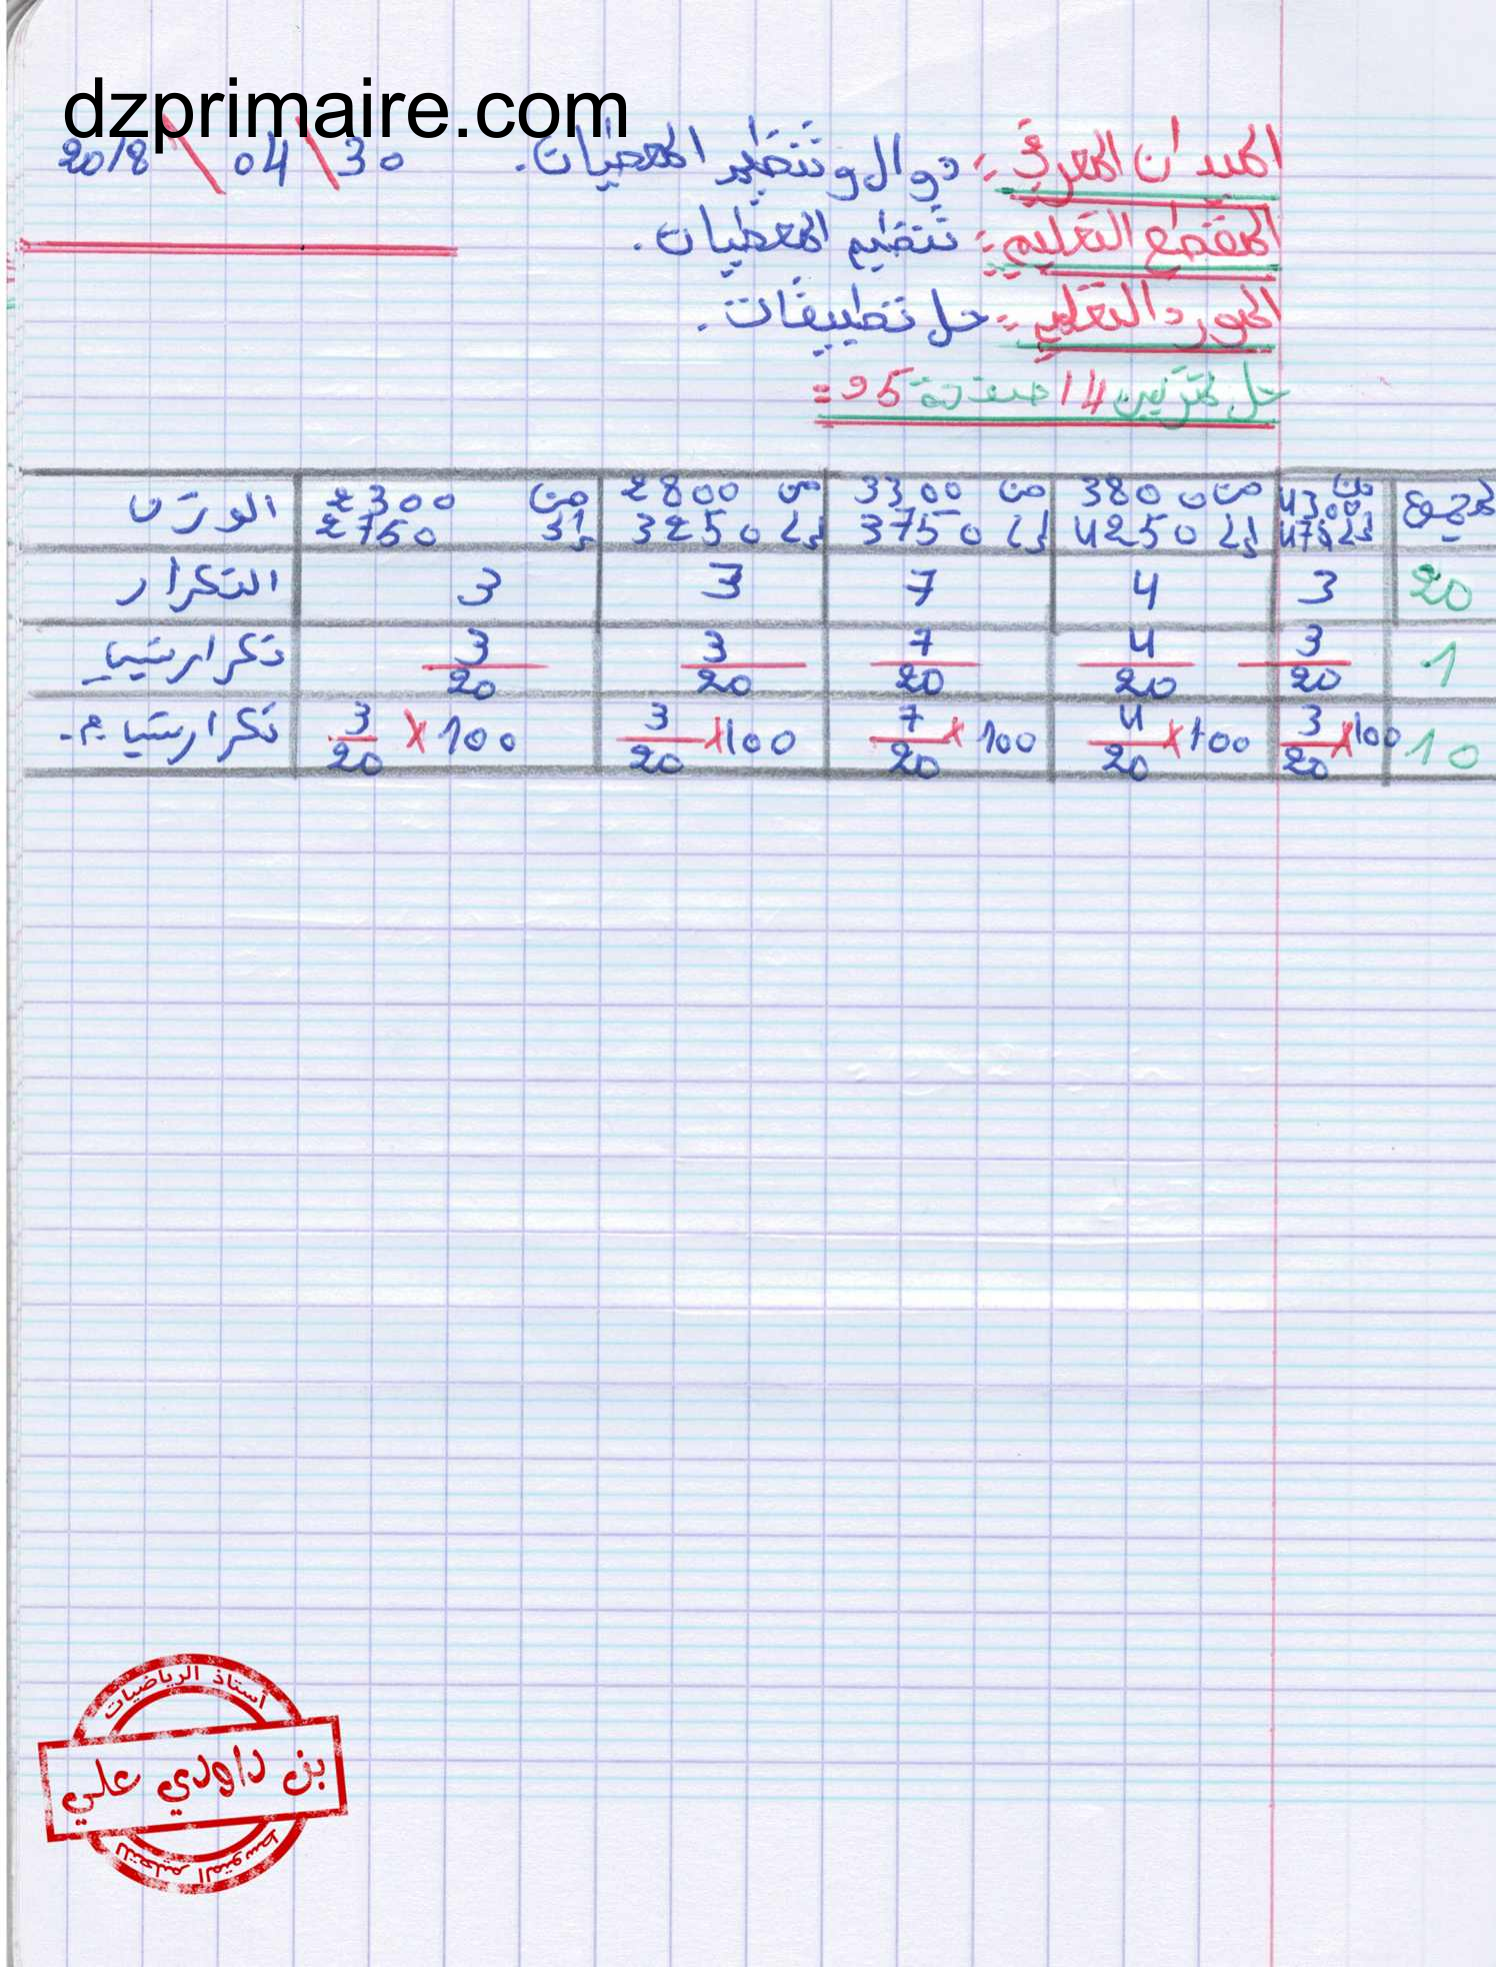 dzprimaire.com
الميدان المعرفي: دوال وتنظيم المعطيات. 30 \ 04 \ 2018
المقطع التعليمي: تنظيم المعطيات.
المورد التعليمي: حل تطبيقات.
حل تمرين 14 صفحة 95:
الوزن من 2300 إلى 2750 من 2800 إلى 3250 من 3300 إلى 3750 من 3800 إلى 4250 من 4300 إلى 475 مجموع
التكرار 3 3 7 4 3 20
تكرار نسبي 3/20 3/20 7/20 4/20 3/20 1
تكرار نسبي م. 3/20 × 100 3/20 × 100 7/20 × 100 4/20 × 100 3/20 × 100 10
أستاذ الرياضيات
بن داودي علي
للتعليم المتوسط